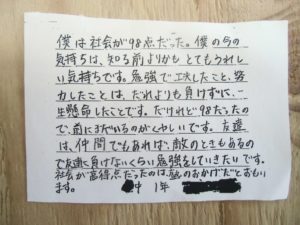 僕は社会が98点だった。僕の今の
気持ちは、知る前よりかも とてもうれし
い気持ちです。勉強で工夫したこと、努
力したことは、だれよりも負けずに、一
生懸命したことです。だけれど98だったの
で、前にまだいるのがくやしいです。友達
は、仲間でもあれば、敵のときもあるの
で友達に負けないくらい勉強をしていきたいです。
社会が高得点だったのは、塾のおかげだとおもい
ます。 中 1年